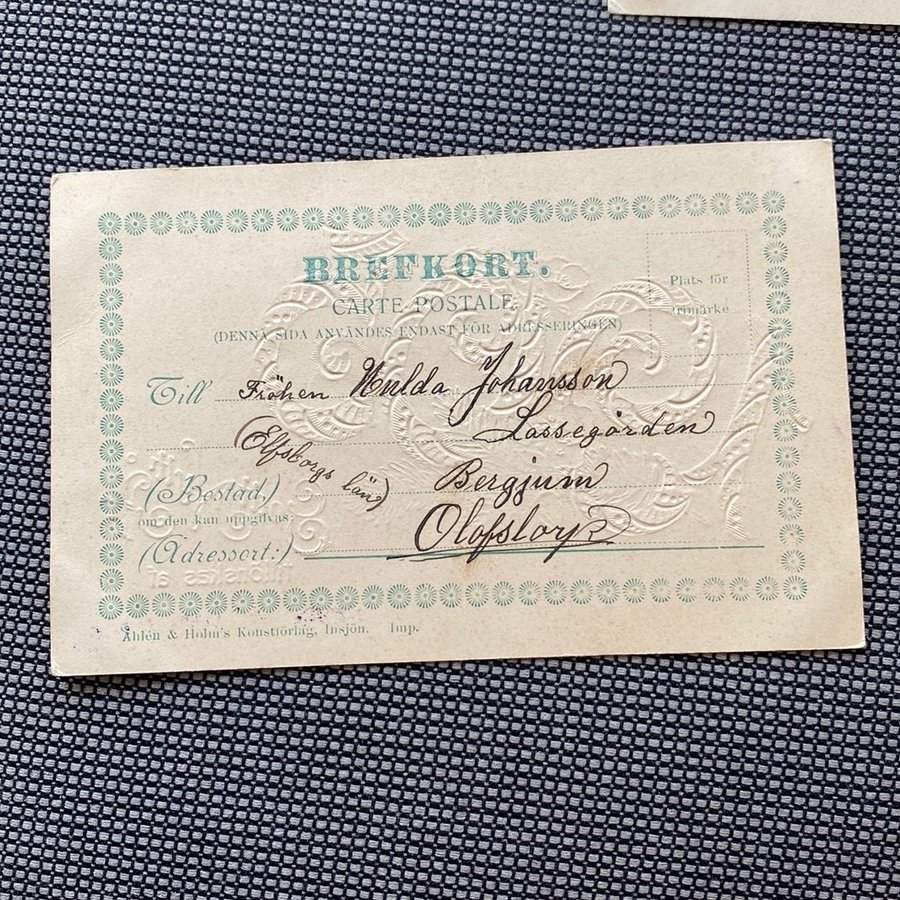 BREFKORT.
CARTE POSTALE.
(DENNA SIDA ANVÄNDES ENDAST FÖR ADRESSERINGEN)
Plats för
frimärke
Till Fröken Hulda Johansson
Lassegården
(Elfsborgs län)
Bergjum
(Bostad,)
om den kan uppgifvas:
Olofstorp
(Adressort:)
Åhlén & Holm's Konstförlag, Insjön. Imp.